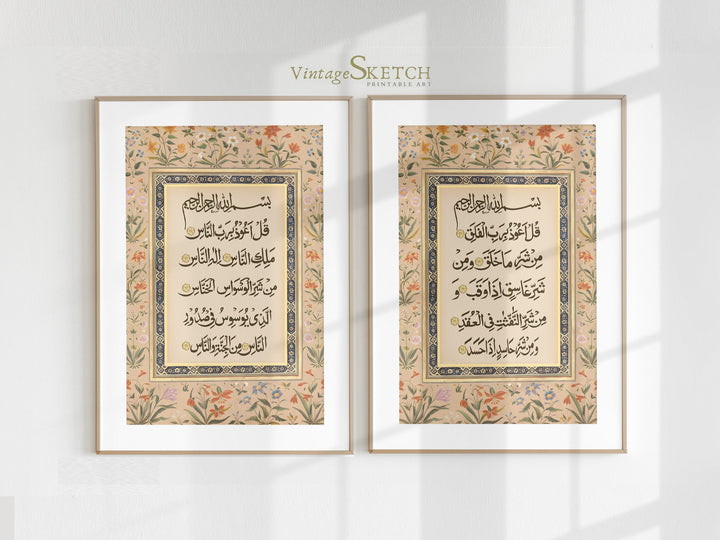 Vintage SKETCH
PRINTABLE ART
بسم الله الرحمن الرحيم
قُلْ أَعُوذُ بِرَبِّ النَّاسِ
مَلِكِ النَّاسِ إِلَٰهِ النَّاسِ
مِن شَرِّ الْوَسْوَاسِ الْخَنَّاسِ
الَّذِي يُوَسْوِسُ فِي صُدُورِ
النَّاسِ مِنَ الْجِنَّةِ وَالنَّاسِ
بسم الله الرحمن الرحيم
قُلْ أَعُوذُ بِرَبِّ الْفَلَقِ
مِن شَرِّ مَا خَلَقَ وَمِن
شَرِّ غَاسِقٍ إِذَا وَقَبَ وَ
مِن شَرِّ النَّفَّٰثَٰتِ فِي الْعُقَدِ
وَمِن شَرِّ حَاسِدٍ إِذَا حَسَدَ